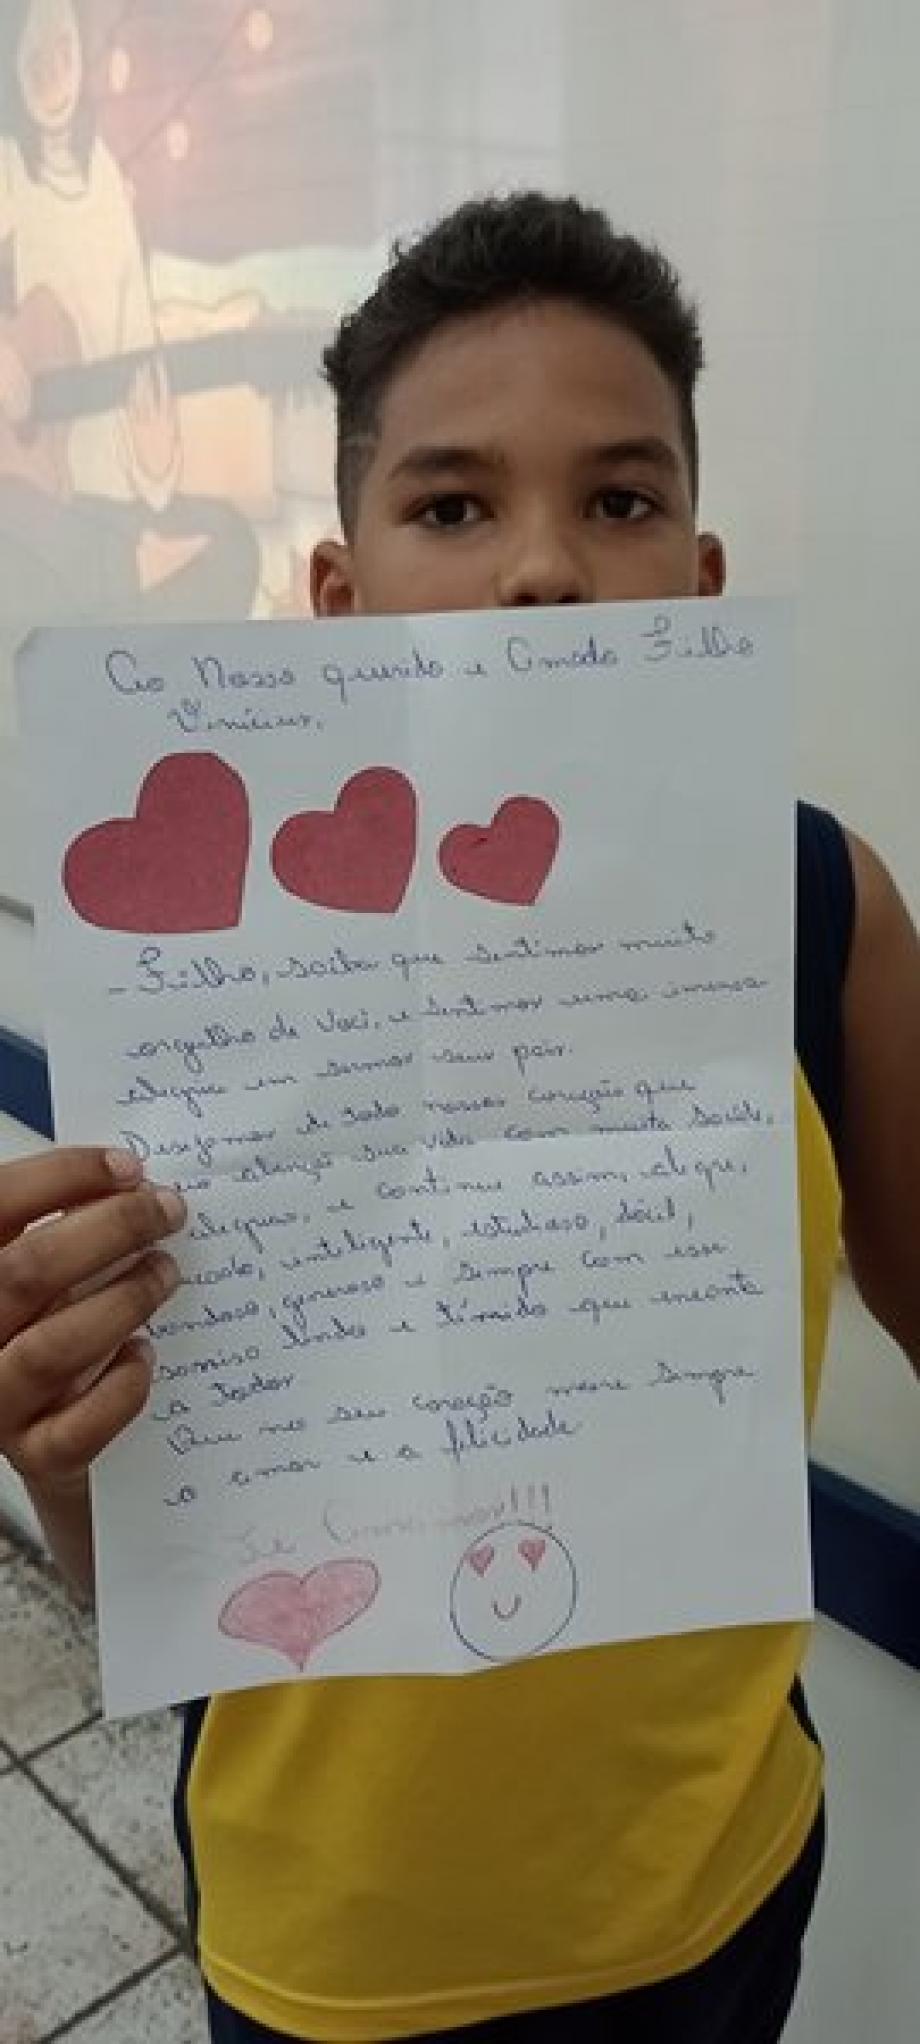 Ao Nosso querido e Amado Filho
Vinícius.
- Filho, saiba que sentimos muito
orgulho de você, e sentimos uma imensa
alegria em sermos seus pais.
Desejamos de todo nosso coração que
alcançe sua vida com muita saúde,
alegrias, e continue assim, alegre,
inteligente, estudioso, dócil,
bondoso, generoso e sempre com esse
sorriso lindo e tímido que encanta
a todos
Que no seu coração more sempre
o amor e a felicidade
Te Amamos!!!